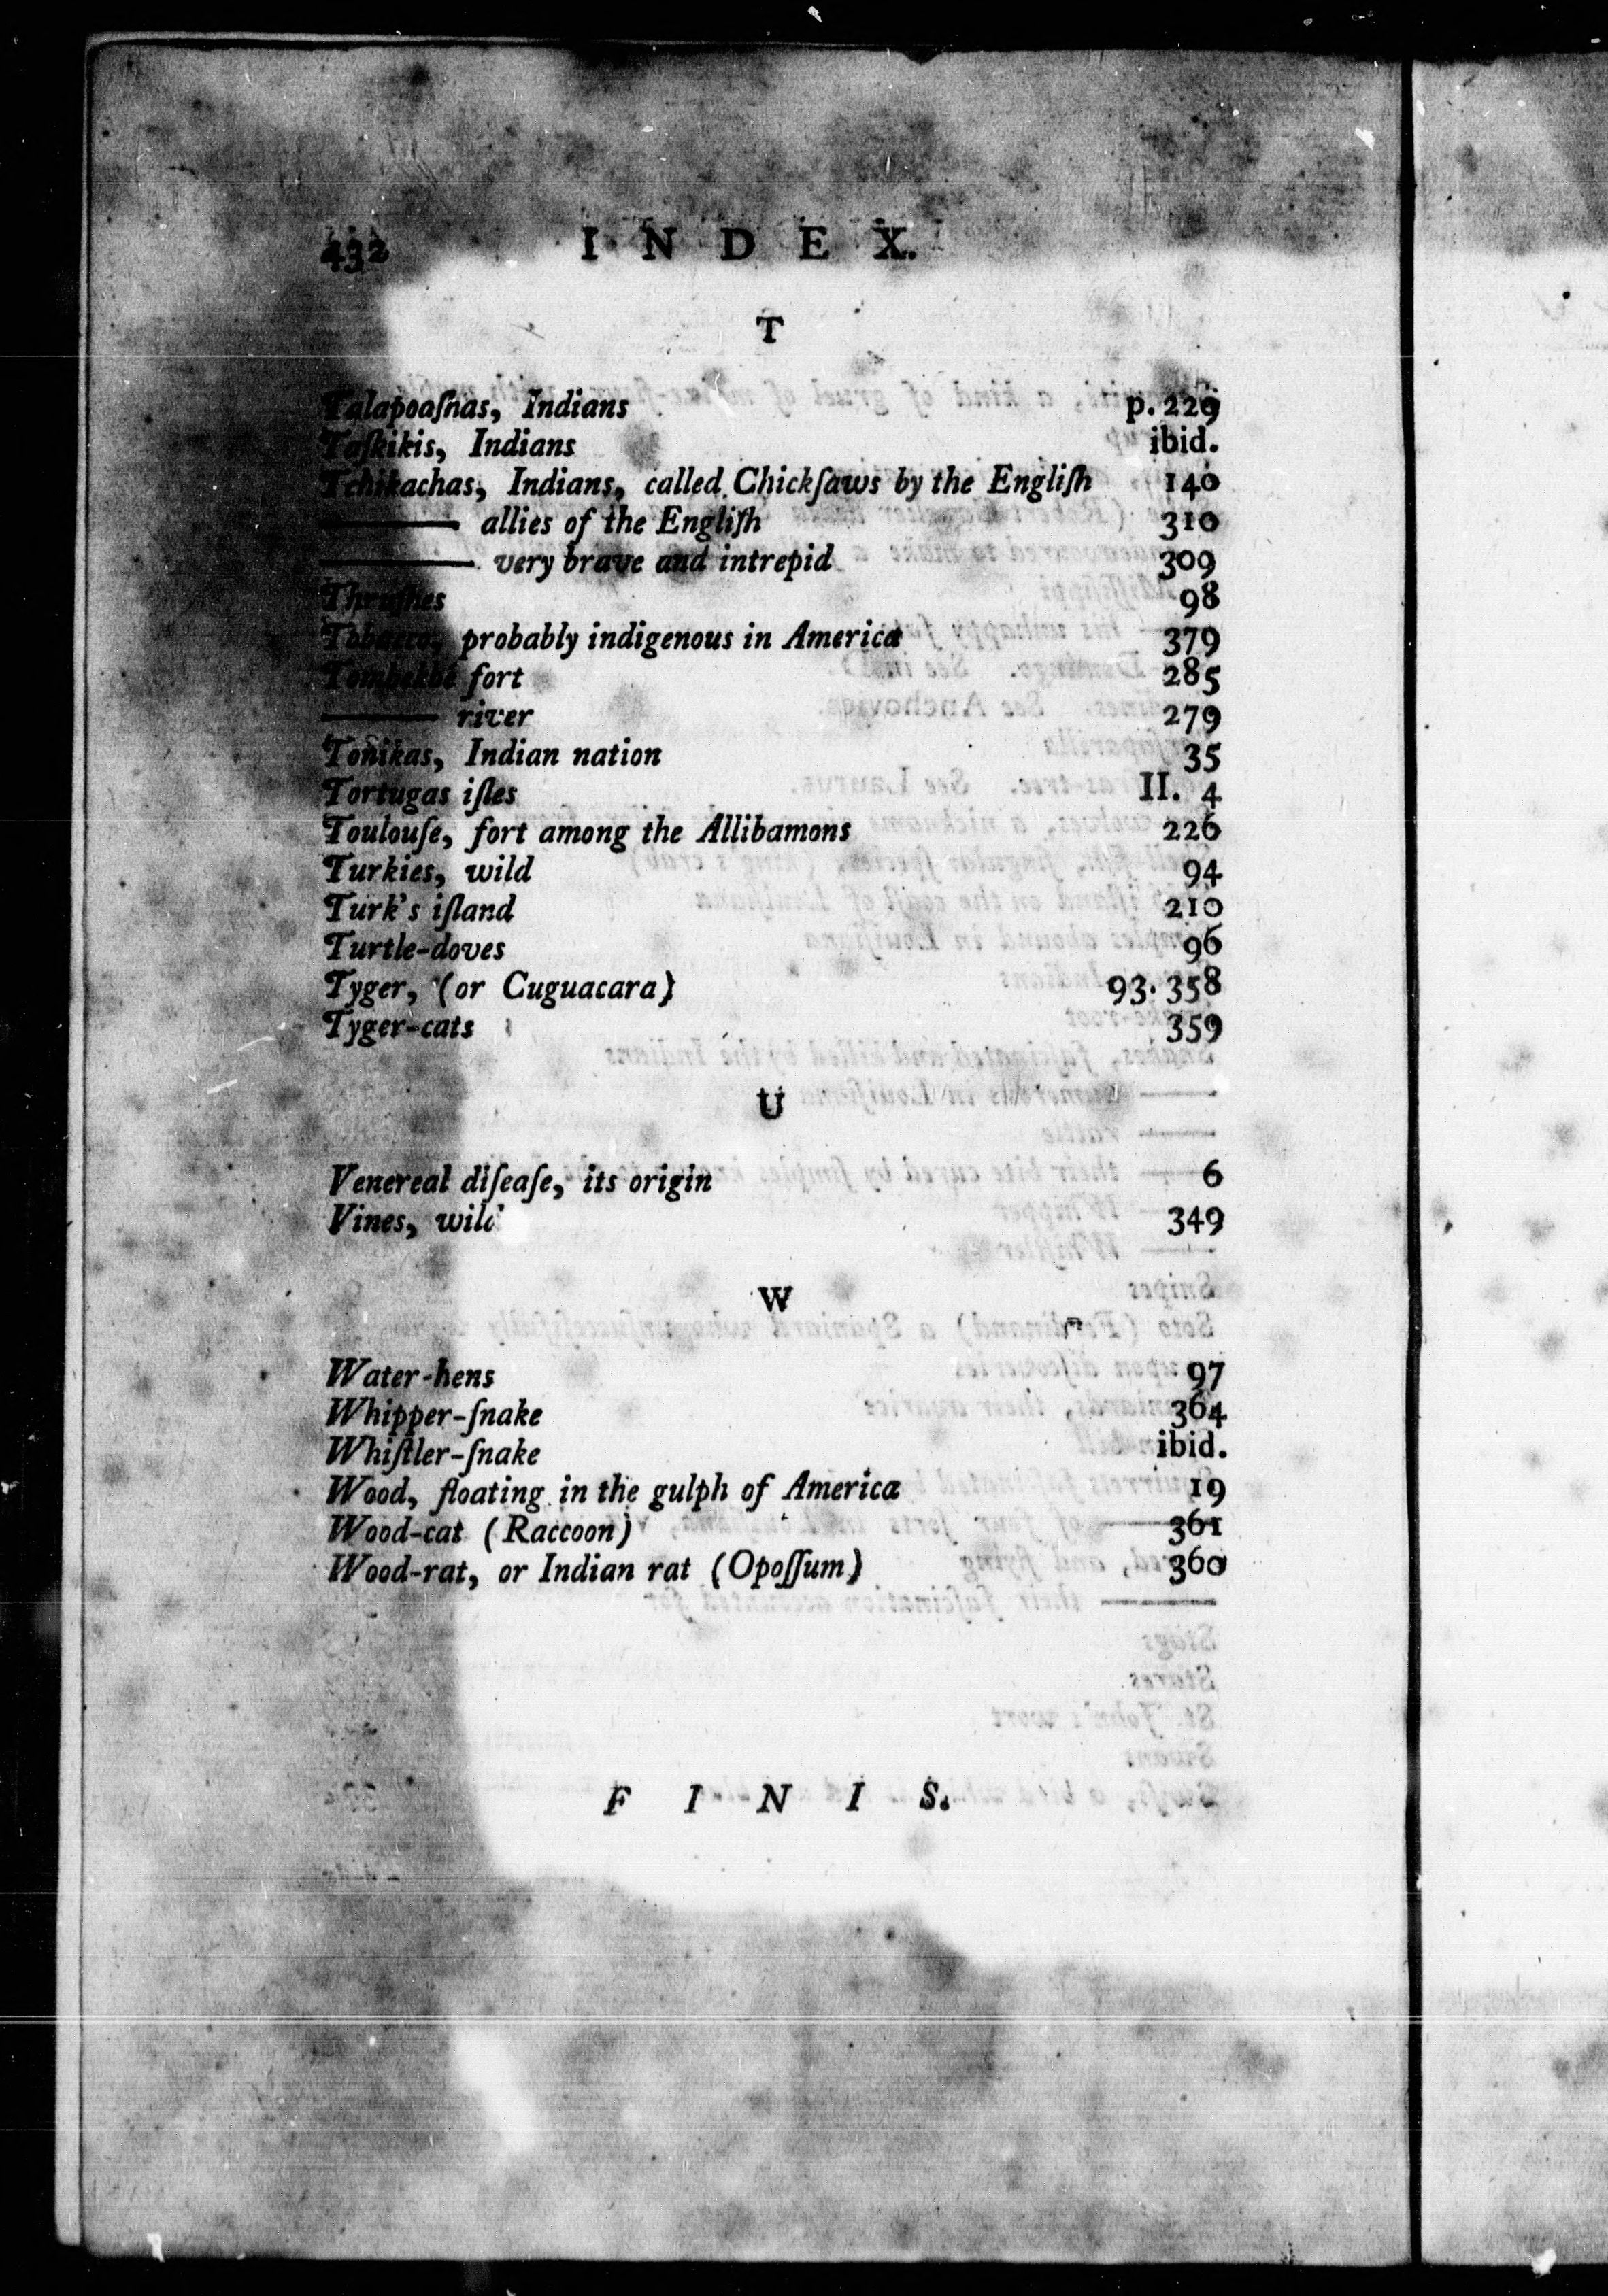 432 INDEX.
T
Talapoaſnas, Indians p. 229
Taſkikis, Indians ibid.
Tchikachas, Indians, called Chickſaws by the Engliſh 140
——— allies of the Engliſh 310
——— very brave and intrepid 309
Thruſhes 98
Tobacco, probably indigenous in America 379
Tombekbe fort 285
——— river 279
Tonikas, Indian nation 35
Tortugas iſles II. 4
Toulouſe, fort among the Allibamons 226
Turkies, wild 94
Turk's iſland 210
Turtle-doves 96
Tyger, (or Cuguacara) 93. 358
Tyger-cats 359
U
Venereal diſeaſe, its origin 6
Vines, wild 349
W
Water-hens 97
Whipper-ſnake 364
Whiſtler-ſnake ibid.
Wood, floating in the gulph of America 19
Wood-cat (Raccoon) 361
Wood-rat, or Indian rat (Opoſſum) 360
FINIS.